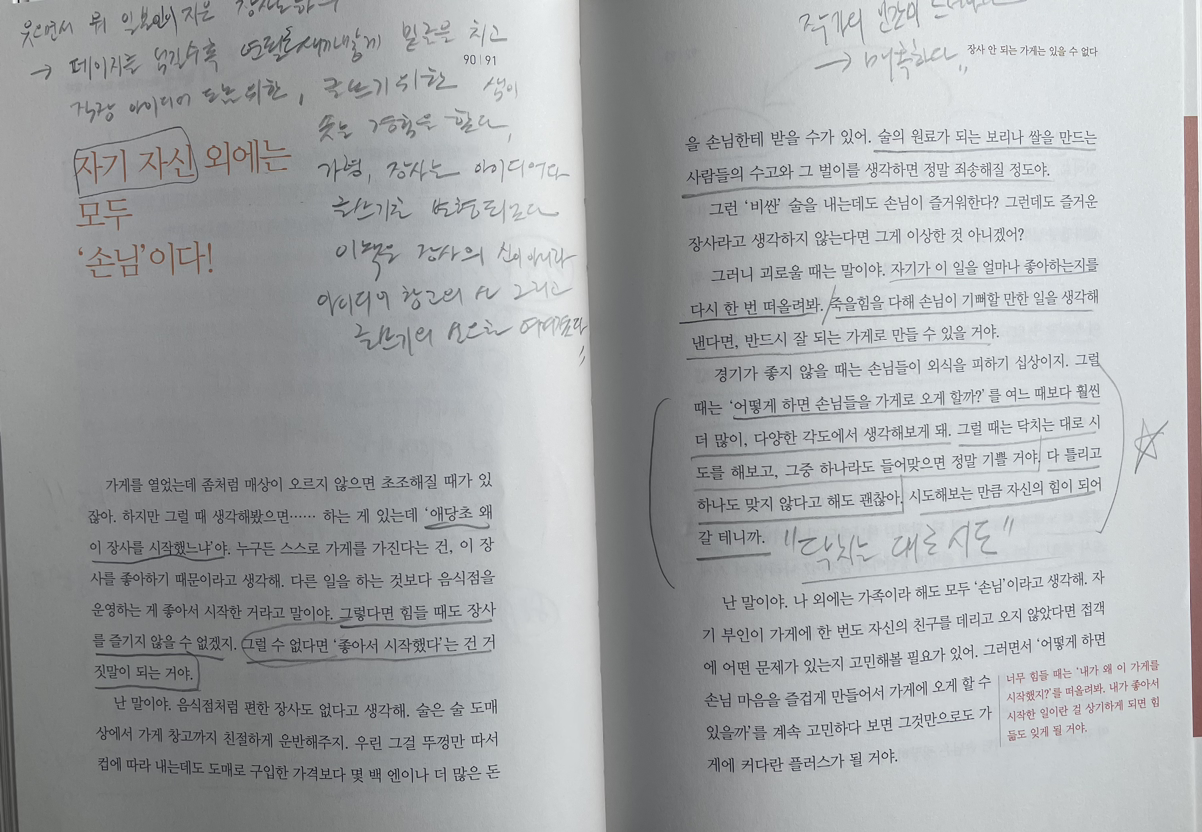 웃으면서 뭐 일본인이 지은
→ 페이지를 넘길수록 연필로 새까맣게 밑줄을 치고
직장 아이디어 위한, 글쓰기 위한 샘이
솟는 경험을 한다,
가령, 장사는 아이디어다
글쓰기로 변형되고다
이 책은 장사의 신이 아니라
아이디어 창고의 신 그리고
글쓰기의 신으로
90 | 91
자기 자신 외에는
모두
‘손님’이다!
가게를 열었는데 좀처럼 매상이 오르지 않으면 초조해질 때가 있
잖아. 하지만 그럴 때 생각해봤으면…… 하는 게 있는데 ‘애당초 왜
이 장사를 시작했느냐’야. 누구든 스스로 가게를 가진다는 건, 이 장
사를 좋아하기 때문이라고 생각해. 다른 일을 하는 것보다 음식점을
운영하는 게 좋아서 시작한 거라고 말이야. 그렇다면 힘들 때도 장사
를 즐기지 않을 수 없겠지. 그럴 수 없다면 ‘좋아서 시작했다’는 건 거
짓말이 되는 거야.
난 말이야. 음식점처럼 편한 장사도 없다고 생각해. 술은 술 도매
상에서 가게 창고까지 친절하게 운반해주지. 우린 그걸 뚜껑만 따서
컵에 따라 내는데도 도매로 구입한 가격보다 몇 백 엔이나 더 많은 돈
인간의
→ 매혹하다,,
장사 안 되는 가게는 있을 수 없다
을 손님한테 받을 수가 있어. 술의 원료가 되는 보리나 쌀을 만드는
사람들의 수고와 그 벌이를 생각하면 정말 죄송해질 정도야.
그런 ‘비싼’ 술을 내는데도 손님이 즐거워한다? 그런데도 즐거운
장사라고 생각하지 않는다면 그게 이상한 것 아니겠어?
그러니 괴로울 때는 말이야. 자기가 이 일을 얼마나 좋아하는지를
다시 한 번 떠올려봐. 죽을힘을 다해 손님이 기뻐할 만한 일을 생각해
낸다면, 반드시 잘 되는 가게로 만들 수 있을 거야.
경기가 좋지 않을 때는 손님들이 외식을 피하기 십상이지. 그럴
때는 ‘어떻게 하면 손님들을 가게로 오게 할까?’를 여느 때보다 훨씬
더 많이, 다양한 각도에서 생각해보게 돼. 그럴 때는 닥치는 대로 시
도를 해보고, 그중 하나라도 들어맞으면 정말 기쁠 거야. 다 틀리고
하나도 맞지 않다고 해도 괜찮아. 시도해보는 만큼 자신의 힘이 되어
갈 테니까.
"닥치는 대로 시도"
난 말이야. 나 외에는 가족이라 해도 모두 ‘손님’이라고 생각해. 자
기 부인이 가게에 한 번도 자신의 친구를 데리고 오지 않았다면 접객
에 어떤 문제가 있는지 고민해볼 필요가 있어. 그러면서 ‘어떻게 하면
손님 마음을 즐겁게 만들어서 가게에 오게 할 수
있을까’를 계속 고민하다 보면 그것만으로도 가
게에 커다란 플러스가 될 거야.
너무 힘들 때는 ‘내가 왜 이 가게를
시작했지?’를 떠올려봐. 내가 좋아서
시작한 일이란 걸 상기하게 되면 힘
듦도 잊게 될 거야.